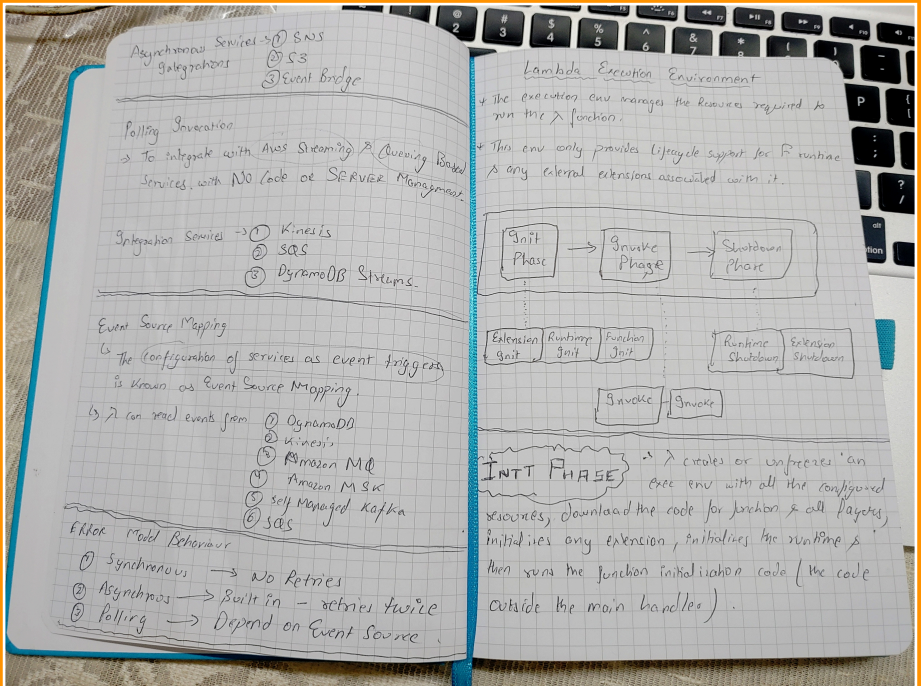 Asynchronous Services → ① SNS
Integrations ② S3
③ Event Bridge
Polling Invocation
→ To integrate with AWS Streaming & Queuing Based
Services, with NO Code or SERVER Managment.
Integration Services → ① Kinesis
② SQS
③ DynamoDB Streams.
Event Source Mapping
↳ The Configuration of services as event triggers
is Known as Event Source Mapping.
↳ λ can read events from ① DynamoDB
② Kinesis
③ Amazon MQ
④ Amazon MSK
⑤ Self Managed Kafka
⑥ SQS
ERROR Model Behaviour
① Synchronous → No Retries
② Asynchrous → Built in - retries twice
③ Polling → Depend on Event Source.
Lambda Execution Environment
+ The execution env manages the Resources required to
run the λ function.
+ This env only provides lifecycle support for F runtime
& any external extensions associated with it.
Init
Phase
→ Invoke
Phase
→ Shutdown
Phase
Extension
Init
Runtime
Init
Function
Init
Runtime
Shutdown
Extension
Shutdown
Invoke Invoke
INIT PHASE
λ creates or unfreezes an
exec env with all the configured
resources, download the code for function & all layers,
initialises any extension, initialises the runtime &
then runs the function initialisation code (the code
outside the main handler).